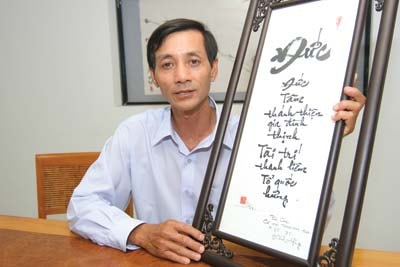 Đức
Đức
Tâm
thánh thiện
gia đình
thịnh
Tài trí
thanh liêm
Tổ quốc
hưng